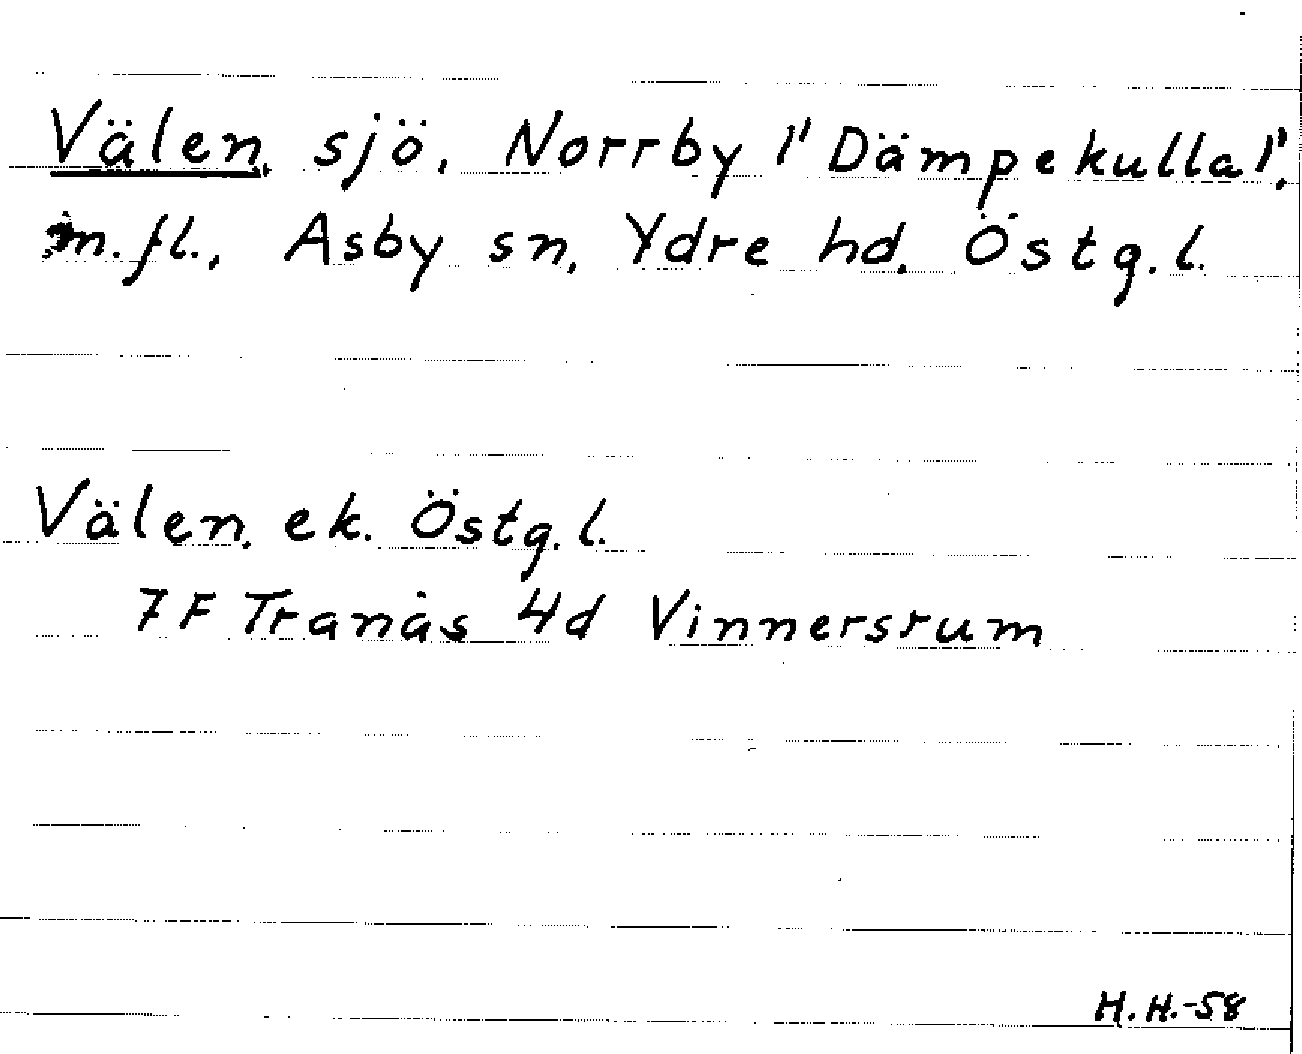 Välen, sjö, Norrby 1' Dämpekulla 1',
m.fl., Asby sn, Ydre hd, Östg. l.
Välen. ek. Östg. l.
7F Tranås 4d Vinnersrum
H. H.-58